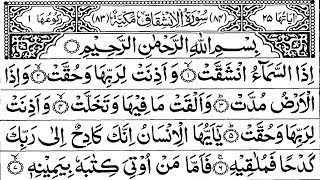 اٰیَاتُهَا ٢٥ (٨٤) سُوْرَةُ الْاِنْشِقَاقِ مَكِّیَّةٌ (٨٣) رُكُوْعُهَا ١
بِسْمِ اللّٰهِ الرَّحْمٰنِ الرَّحِیْمِ
اِذَا السَّمَآءُ انْشَقَّتْ ۙ١ وَ اَذِنَتْ لِرَبِّهَا وَ حُقَّتْ ۙ٢ وَ اِذَا
الْاَرْضُ مُدَّتْ ۙ٣ وَ اَلْقَتْ مَا فِیْهَا وَ تَخَلَّتْ ۙ٤ وَ اَذِنَتْ
لِرَبِّهَا وَ حُقَّتْ ۙ٥ یٰۤاَیُّهَا الْاِنْسَانُ اِنَّكَ كَادِحٌ اِلٰی رَبِّكَ
كَدْحًا فَمُلٰقِیْهِ ۚ٦ فَاَمَّا مَنْ اُوْتِیَ كِتٰبَهٗ بِیَمِیْنِهٖ ۙ٧